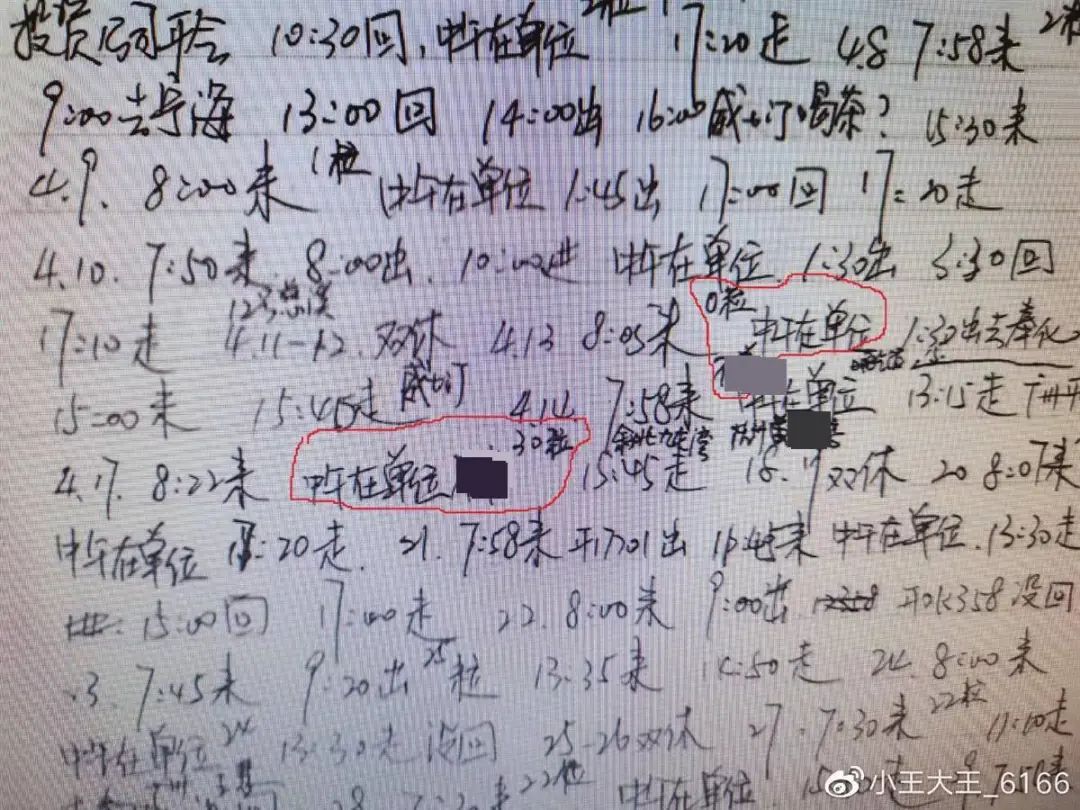 投资公司开会 10:30回,中午在单位 2粒 17:20走 4.8 7:58来 2粒
9:00去宁海 13:00回 14:00出 16:00威士汀喝茶? 15:30来
4.9. 8:00来 1粒 中午在单位 1:45出 17:00回 17:20走
4.10. 7:50来. 8:00出. 10:00进 中午在单位. 1:30出 3:30回
17:10走 4.11-12.双休 4.13 8:05来 0粒 中午在单位 1:30出去奉化
15:00来 15:45走 威士汀 4.14 7:58来 中午在单位 13:15走
4.17. 8:22来 中午在单位 30粒 15:45走 18.19双休 20 8:07来
中午在单位 17:20走. 21. 7:58来 开1701出 中午在单位.13:30走
15:00回 17:00走 22. 8:00来 9:00出 开K358没回
.3. 7:45来 9:20出 25粒 13:35来 14:50走 24. 8:00来
中午在单位 24 13:30走 没回 25-26双休 27. 7:30来 22粒 17:10走
28 7:30来 22粒 中午在单位. 7:50来
小王大王_6166